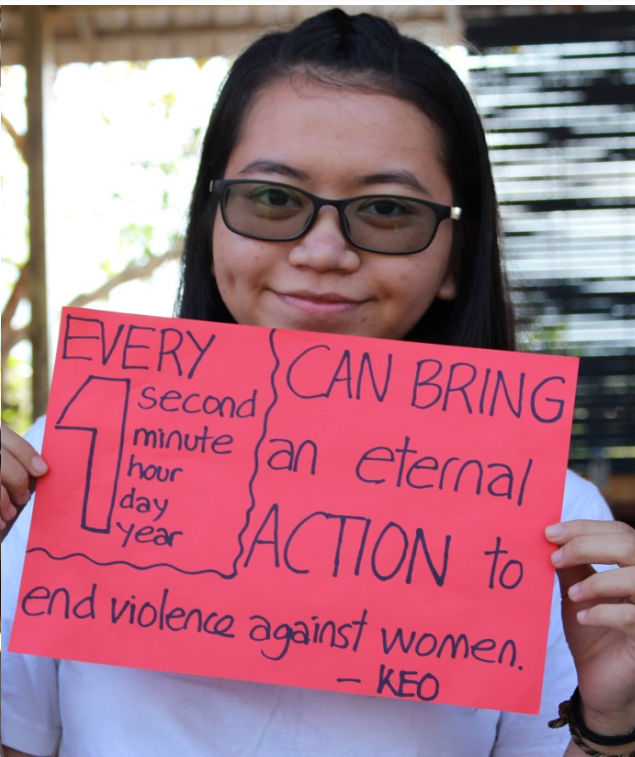 EVERY
1 second
minute
hour
day
year
CAN BRING
an eternal
ACTION to
end violence against women.
— KEO